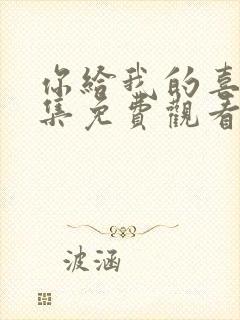 你給我的喜
集免費觀看
波涵